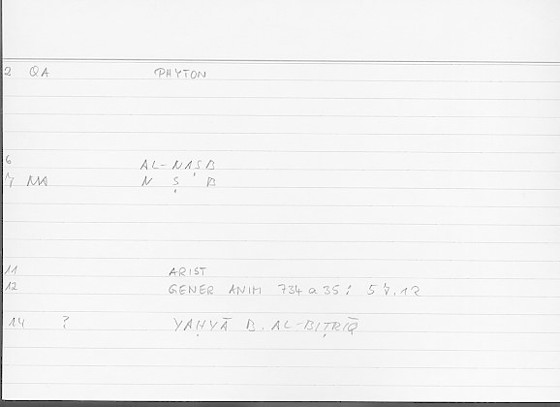 2 QA PHYTON
6 AL-NAṢB
7 NA N Ṣ B
11 ARIST
12 GENER ANIM 734 a 35 : 57.12
14 ? YAḤYĀ B. AL-BIṬRĪQ